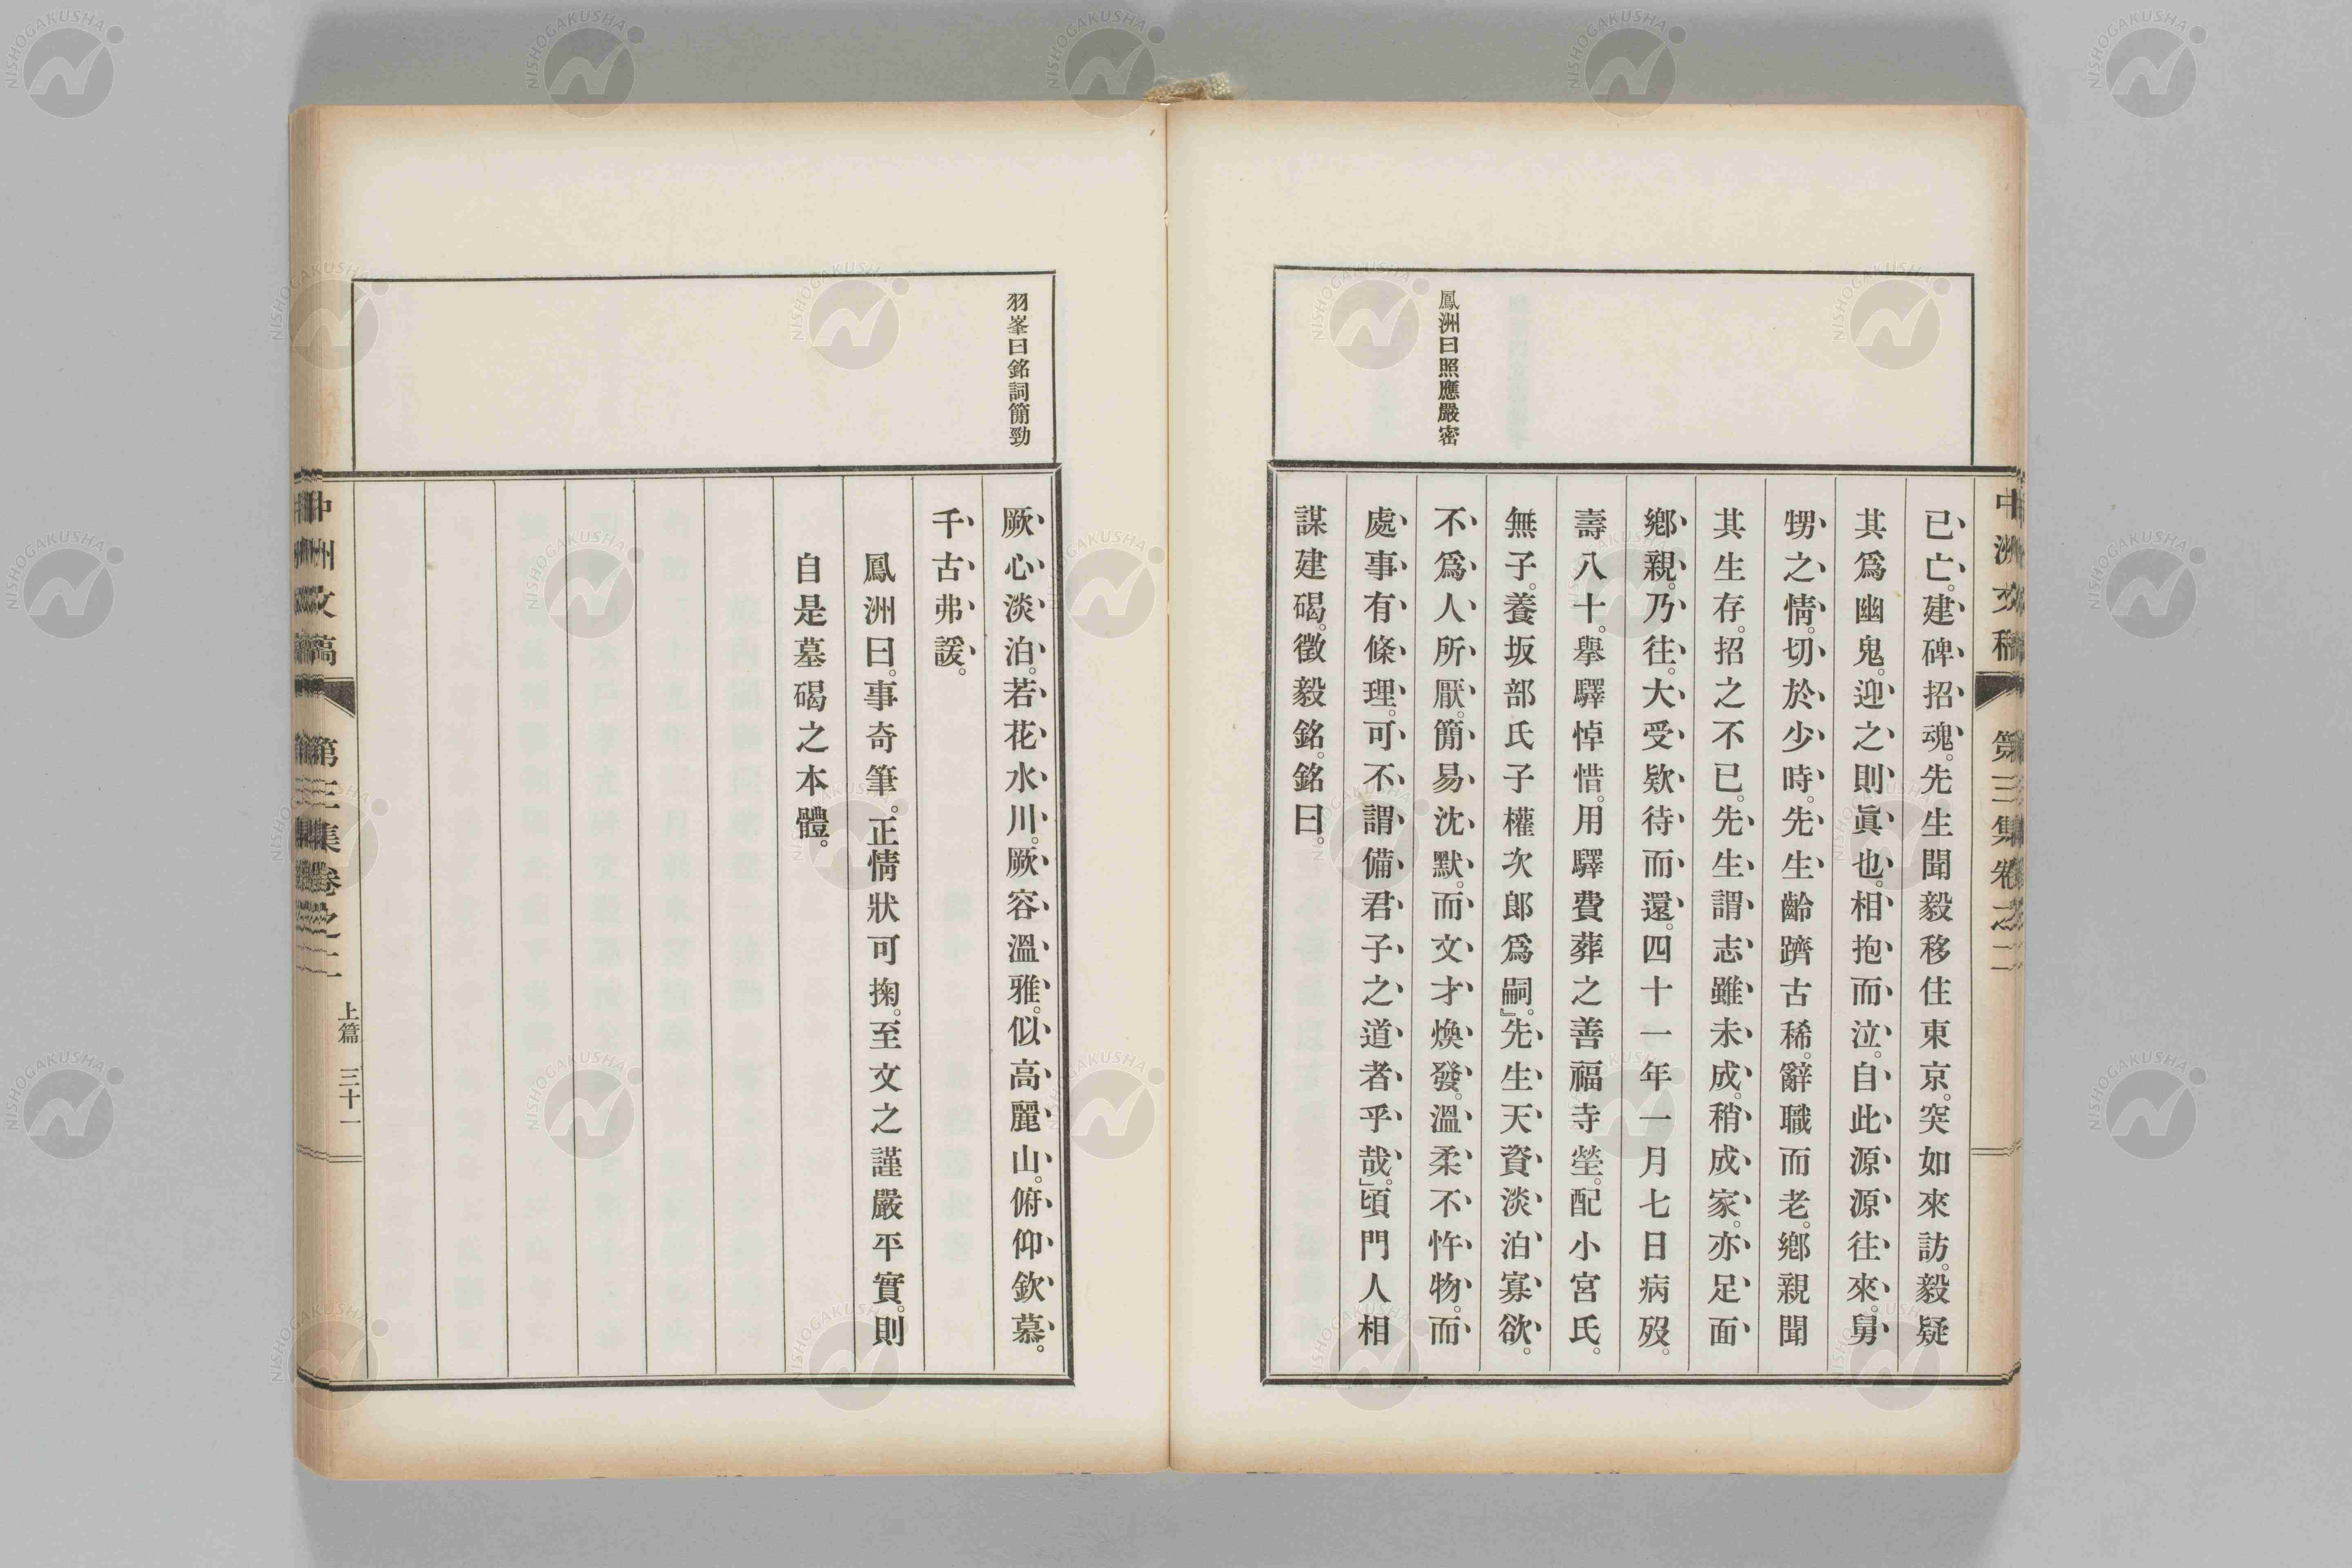 中洲文稿 第三集卷之二
鳳洲曰照應嚴密
已亡。建碑招魂。先生聞毅移住東京。突如來訪。毅疑
其爲幽鬼。迎之則眞也。相抱而泣。自此源源往來。舅
甥之情。切於少時。先生齡躋古稀。辭職而老。鄕親聞
其生存。招之不已。先生謂志雖未成。稍成家。亦足面
鄕親。乃往。大受欵待而還。四十一年一月七日病歿。
壽八十。擧驛悼惜。用驛費葬之善福寺塋。配小宮氏。
無子。養坂部氏子權次郞爲嗣。』先生天資淡泊寡欲。
不爲人所厭。簡易沈默。而文才煥發。溫柔不忤物。而
處事有條理。可不謂備君子之道者乎哉。』頃門人相
謀建碣。徵毅銘。銘曰。
羽峯曰銘詞簡勁
厥心淡泊。若花水川。厥容溫雅。似高麗山。俯仰欽慕。
千古弗諼。
鳳洲曰。事奇筆。正情狀可掬。至文之謹嚴平實。則
自是墓碣之本體。
中洲文稿 第三集卷之二 上篇 三十一
NISHOGAKUSHA